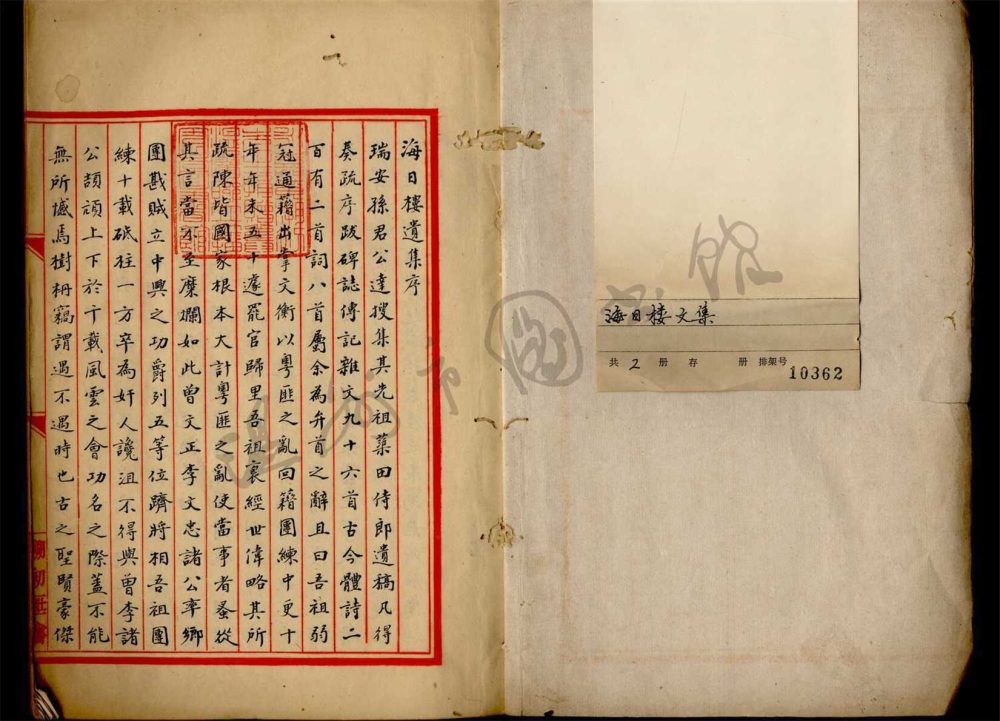 海日樓遺集序
瑞安孫君公達搜集其先祖蕖田侍郎遺稿凡得
奏疏序跋碑誌傳記雜文九十六首古今體詩二
百有二首詞八首屬余為弁首之辭且曰吾祖弱
冠通籍出掌文衡以粵匪之亂回籍團練中更十
年年未五十遽罷官歸里吾祖裹經世偉略其所
疏陳皆國家根本大計粵匪之亂使當事者蚤從
其言當不至糜爛如此曾文正李文忠諸公率鄉
團戡賊立中興之功爵列五等位躋將相吾祖團
練十載砥柱一方卒為奸人讒沮不得與曾李諸
公頡頏上下於千載風雲之會功名之際蓋不能
無所憾焉樹枏竊謂遇不遇時也古之聖賢豪傑
海日楼文集
共 2 册 存 册 排架号
10362
温州市圖書館